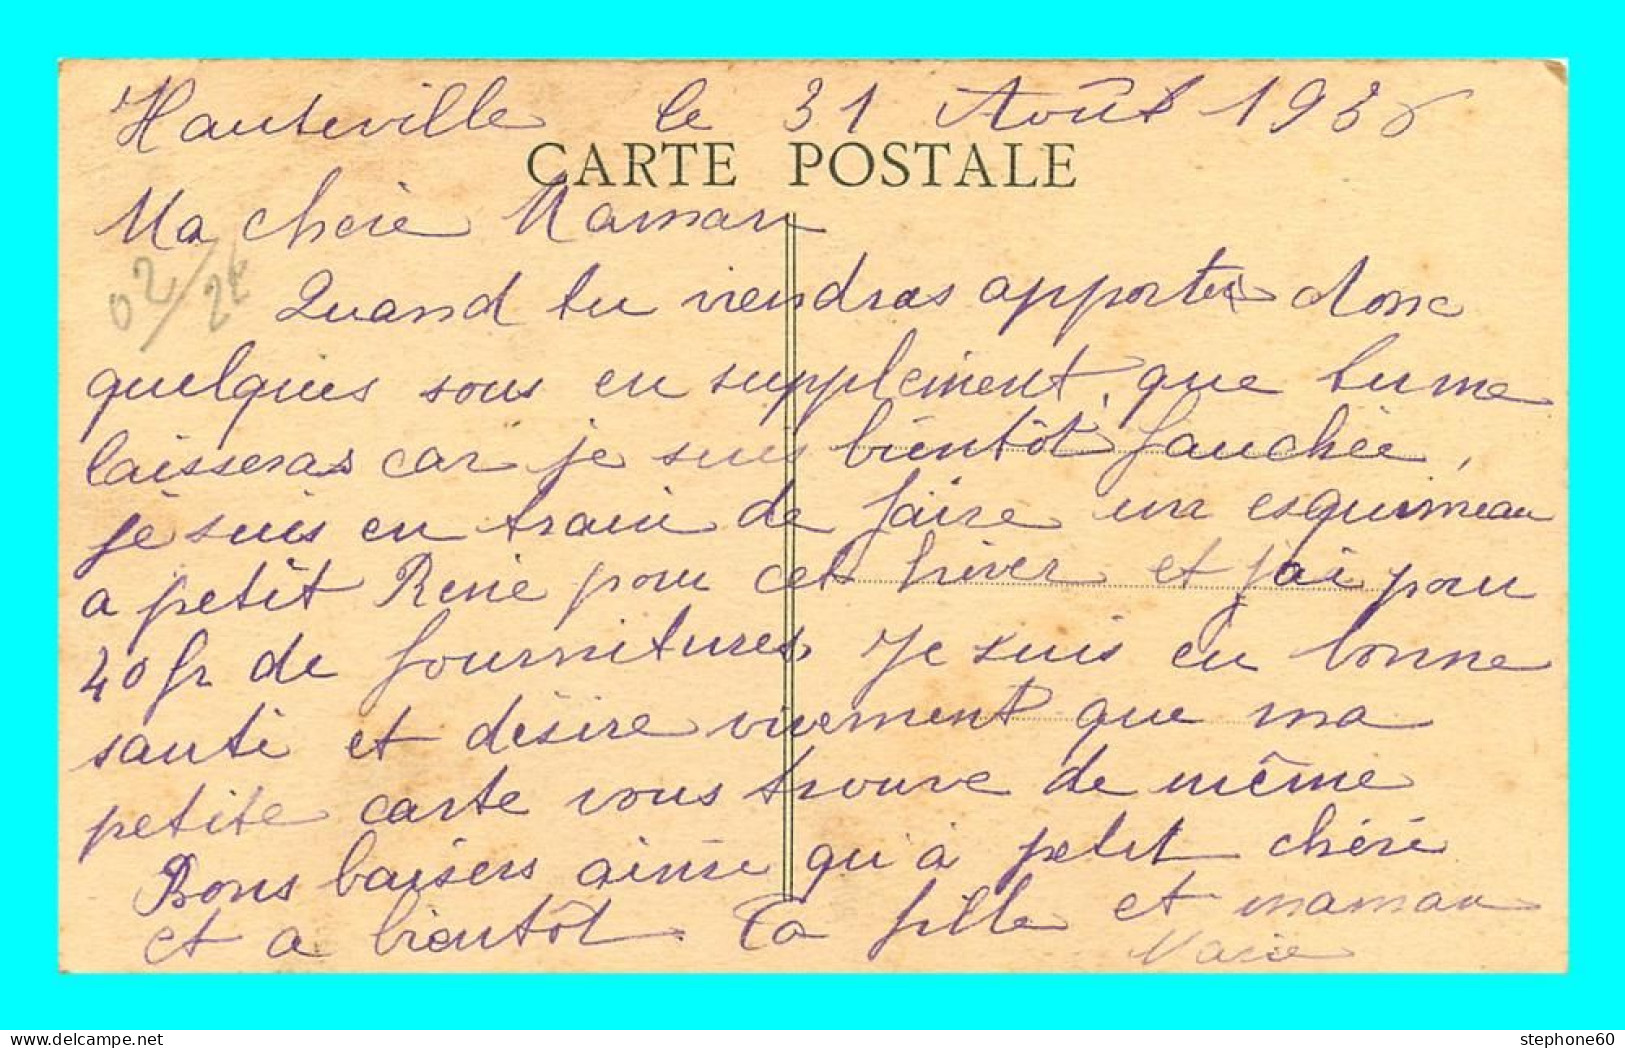 Hauteville le 31 Août 1936
CARTE POSTALE
Ma chère Maman
02/2€
Quand tu viendras apporte donc
quelques sous en supplément, que tu me
laisseras car je suis bientôt fauchée,
je suis en train de faire un esquimeau
a petit René pour cet hiver et j'ai pour
40 fr de fournitures, Je suis en bonne
santé et désire vivement que ma
petite carte vous trouve de même
Bons baisers ainsi qu'à petit chéri
et a bientôt. Ta fille et maman
stephone60